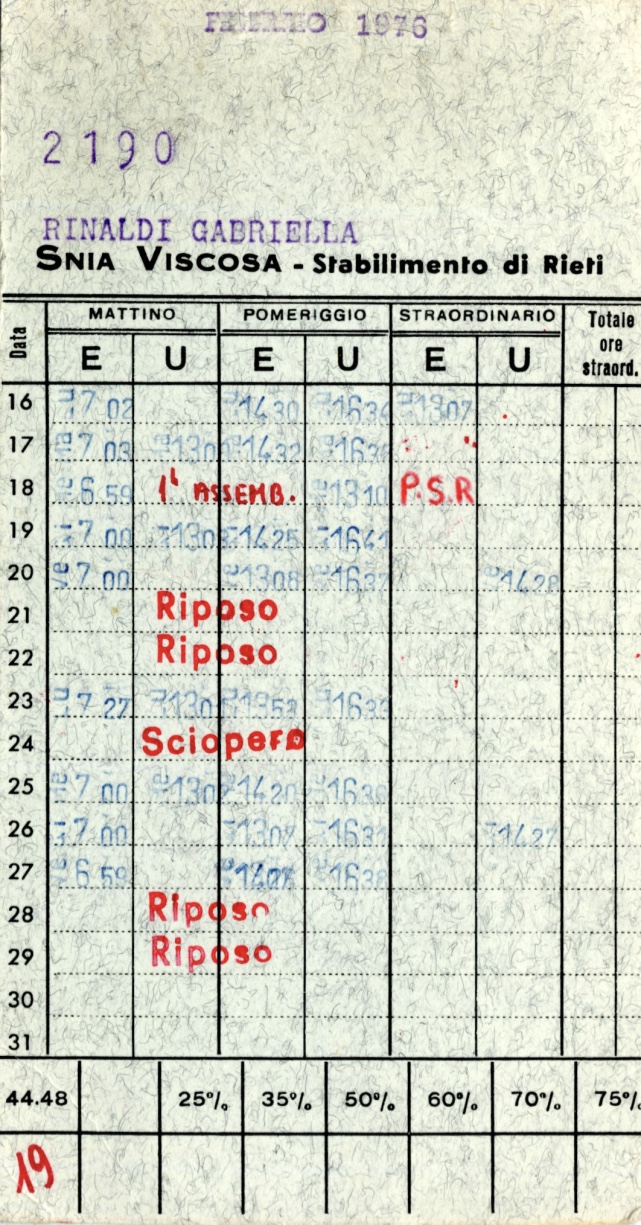 FEBBRAIO 1976
2190
RINALDI GABRIELLA
SNIA VISCOSA - Stabilimento di Rieti
Data MATTINO POMERIGGIO STRAORDINARIO Totale ore straord.
E U E U E U
16 7 02 1430 1634 1307
17 7 03 130 1432 163
18 6 59 1ª ASSEMB. 1310 P.S.R
19 7 00 130 1425 1641
20 7 00 1308 163 1428
21 Riposo
22 Riposo
23 7 27 130 1353 1633
24 Sciopero
25 7 00 130 1420 163
26 7 00 1307 163 1427
27 6 59 163
28 Riposo
29 Riposo
30
31
44.48 25% 35% 50% 60% 70% 75%
19